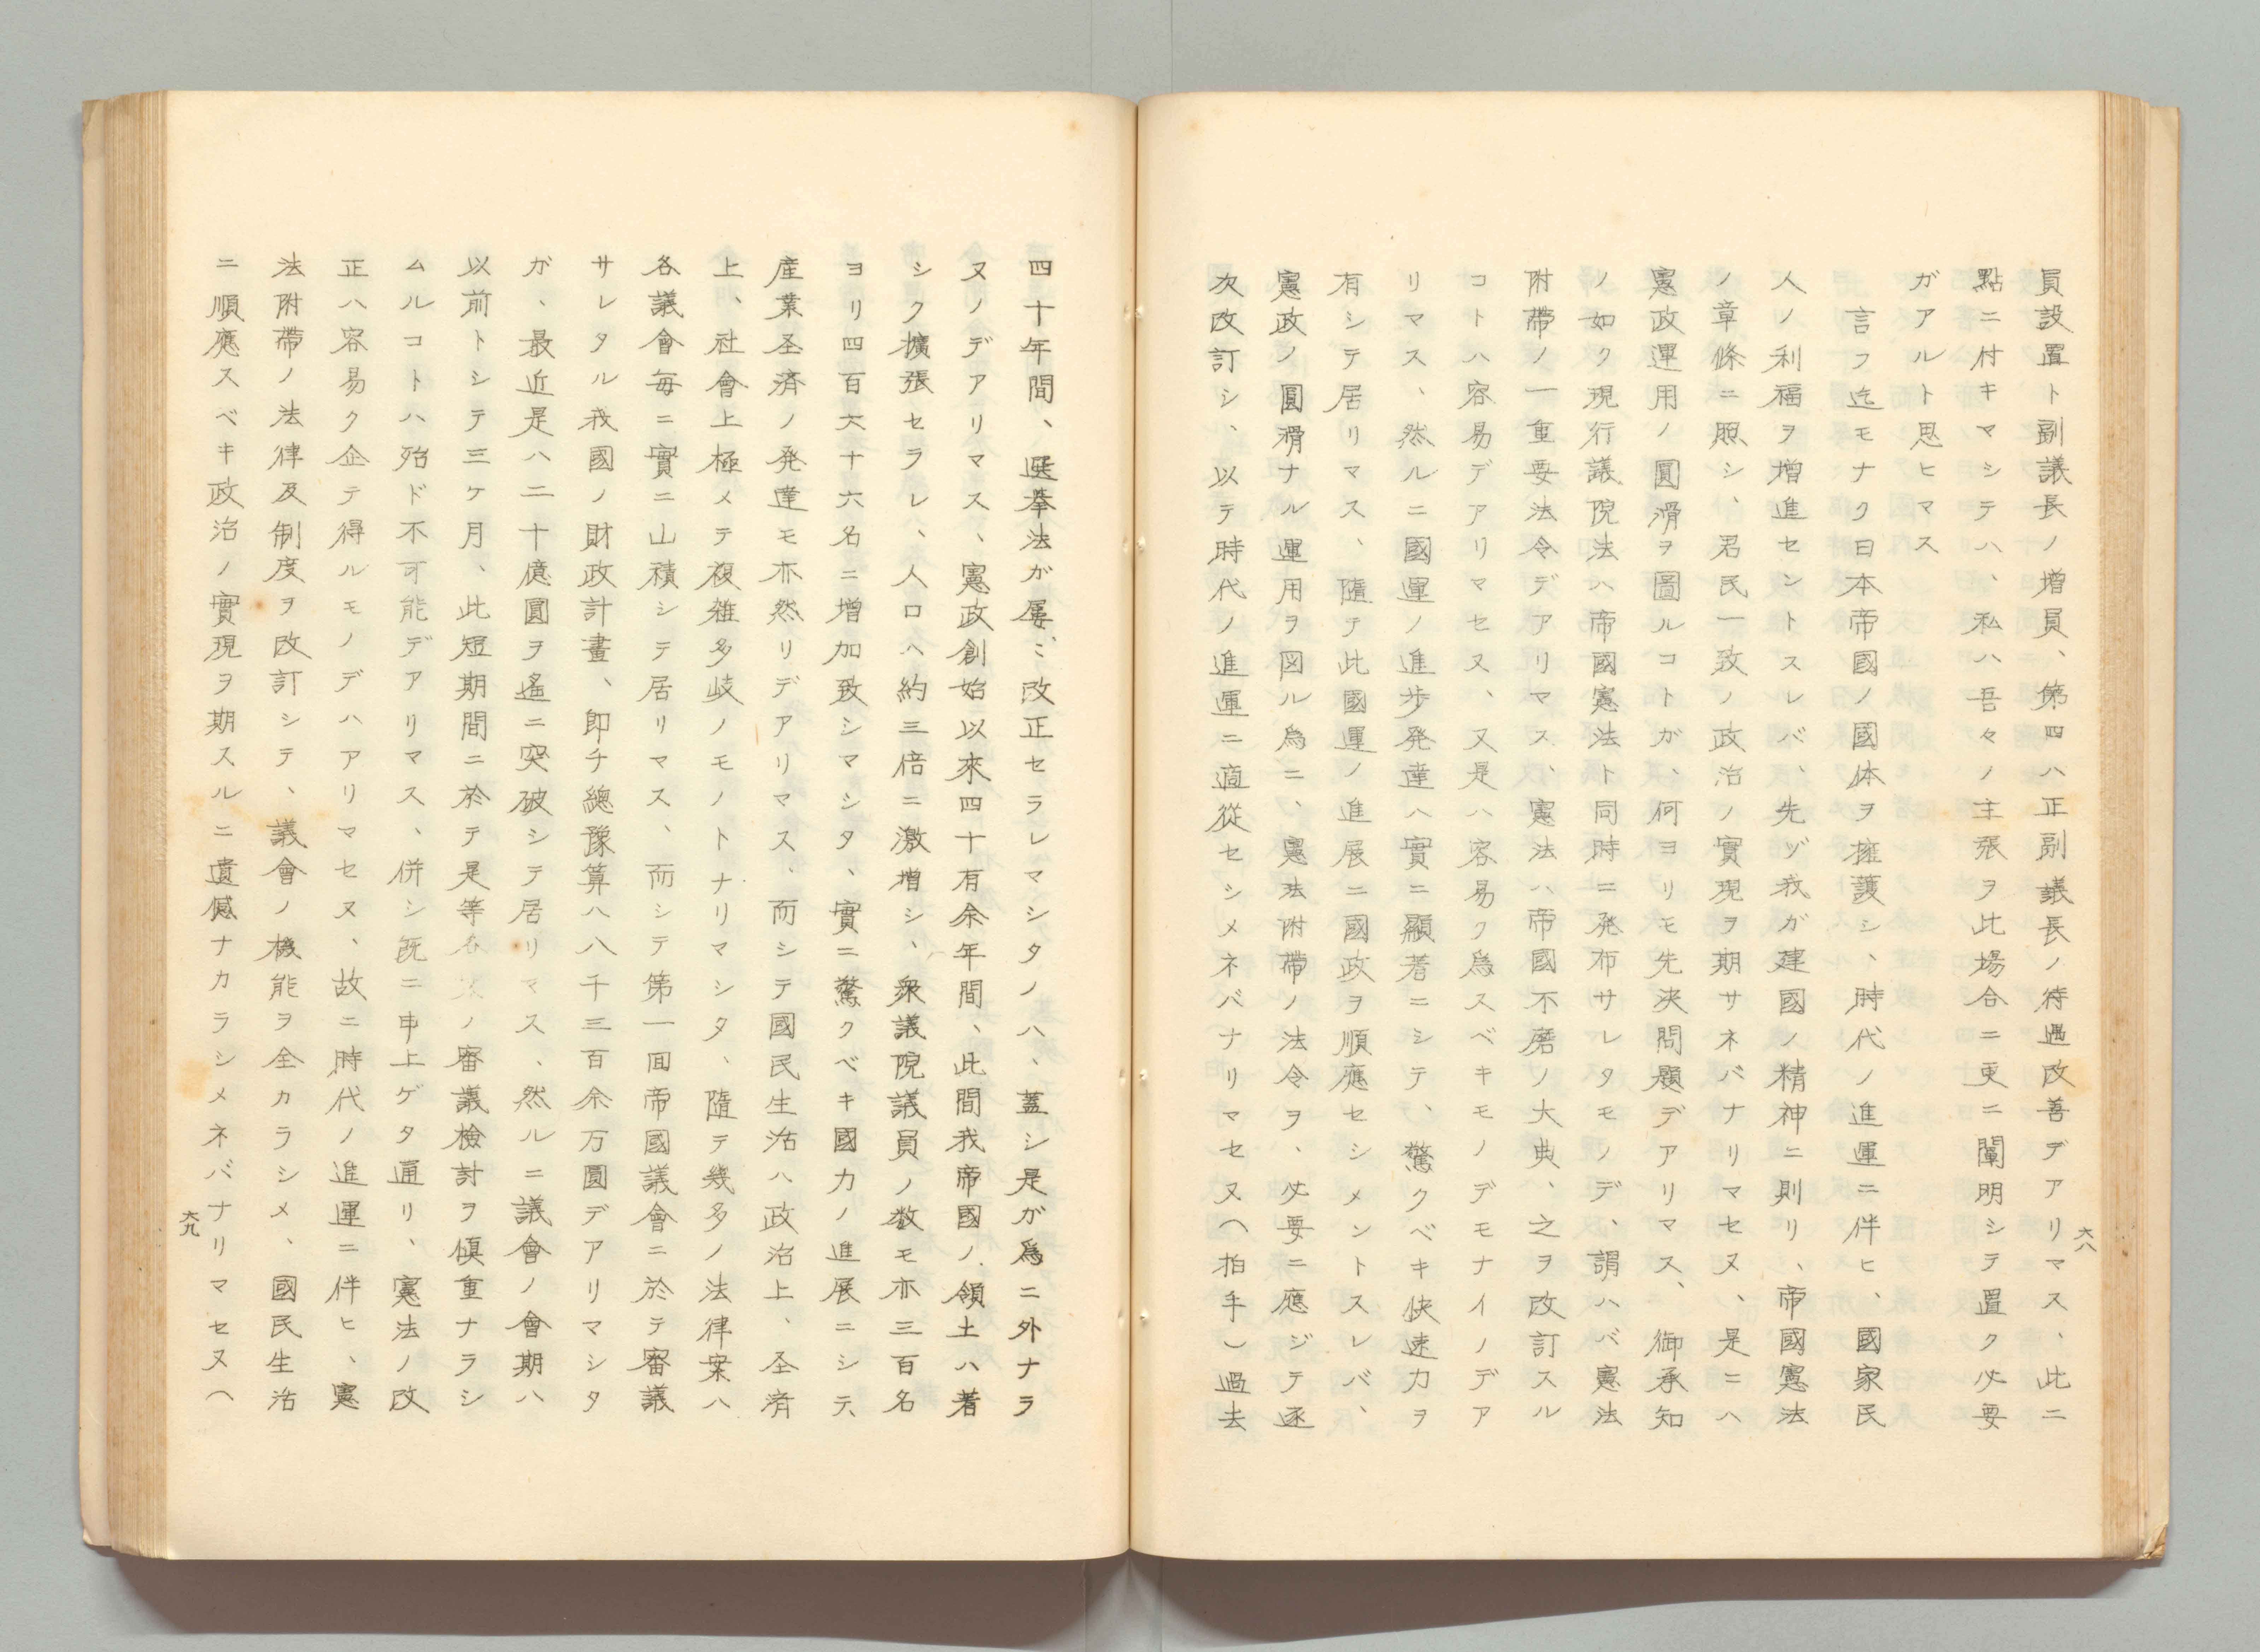 六八
員設置ト副議長ノ増員、第四ハ正副議長ノ待遇改善デアリマス、此ニ
點ニ付キマシテハ、私ハ吾々ノ主張ヲ此場合ニ更ニ闡明シテ置ク必要
ガアルト思ヒマス
言フ迄モナク日本帝國ノ國体ヲ擁護シ、時代ノ進運ニ伴ヒ、國家民
人ノ利福ヲ增進セントスレバ、先ヅ我ガ建國ノ精神ニ則リ、帝國憲法
ノ章條ニ照シ、君民一致ノ政治ノ實現ヲ期サネバナリマセヌ、是ニハ
憲政運用ノ圓滑ヲ圖ルコトガ、何ヨリモ先決問題デアリマス、御承知
ノ如ク現行議院法ハ帝國憲法ト同時ニ発布サレタモノデ、謂ハバ憲法
附帶ノ一重要法令デアリマス、憲法ハ帝國不磨ノ大典、之ヲ改訂スル
コトハ容易デアリマセヌ、又是ハ容易ク爲スベキモノデモナイノデア
リマス、然ルニ國運ノ進歩発達ハ實ニ顯著ニシテ、驚クベキ快速力ヲ
有シテ居リマス、隨テ此國運ノ進展ニ國政ヲ順應セシメントスレバ、
憲政ノ圓滑ナル運用ヲ図ル爲ニ、憲法附帶ノ法令ヲ、必要ニ應ジテ逐
次改訂シ、以テ時代ノ進運ニ適從セシメネバナリマセヌ(拍手)過去
四十年間、選挙法ガ屢〻改正セラレマシタノハ、蓋シ是ガ爲ニ外ナラ
ヌノデアリマス、憲政創始以來四十有余年間、此間我帝國ノ領土ハ著
シク擴張セラレ、人口ハ約三倍ニ激增シ、衆議院議員ノ数モ亦三百名
ヨリ四百六十六名ニ增加致シマシタ、實ニ驚クベキ國力ノ進展ニシテ、
産業圣済ノ発達モ亦然リデアリマス、而シテ國民生活ハ政治上、圣済
上、社會上極メテ複雑多岐ノモノトナリマシタ、隨テ幾多ノ法律案ハ
各議會毎ニ實ニ山積シテ居リマス、而シテ第一回帝國議會ニ於テ審議
サレタル我國ノ財政計畫、即チ總豫算ハ八千三百余万圓デアリマシタ
ガ、最近是ハ二十億圓ヲ遙ニ突破シテ居リマス、然ルニ議會ノ會期ハ
以前トシテ三ケ月、此短期間ニ於テ是等各案ノ審議檢討ヲ愼重ナラシ
ムルコトハ殆ド不可能デアリマス、併シ既ニ申上ゲタ通リ、憲法ノ改
正ハ容易ク企テ得ルモノデハアリマセヌ、故ニ時代ノ進運ニ伴ヒ、憲
法附帶ノ法律及制度ヲ改訂シテ、議會ノ機能ヲ全カラシメ、國民生活
ニ順應スベキ政治ノ實現ヲ期スルニ遺憾ナカラシメネバナリマセヌ(
六九